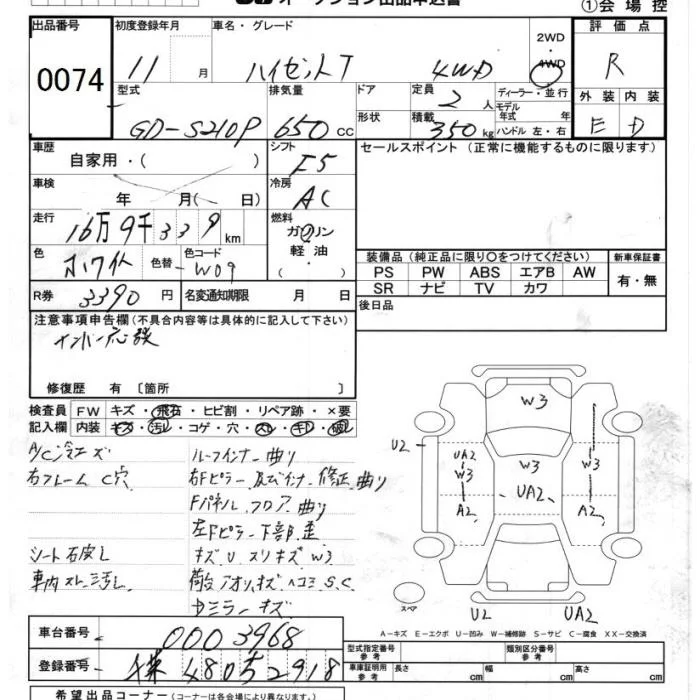 オークション出品申込書
①会場控
出品番号
初度登録年月
車名・グレード
2WD
・
4WD
評価点
0074
11
月
ハイゼットT
4WD
R
型式
排気量
ドア
定員
2
人
ディーラー・並行
モデル
年式 年
外装
内装
GD-S210P
650
cc
形状
積載
350
kg
ハンドル 左・右
E
D
車歴
自家用・( )
シフト
F5
セールスポイント (正常に機能するものに限ります)
車検
年 月( 日)
冷房
AC
走行
16万9千339
km
燃料
ガソリン
軽油
( )
色
ホワイト
色替
色コード
W09
装備品 (純正品に限り〇をつけてください)
新車保証書
PS PW ABS エアB AW
SR ナビ TV カワ
有・無
R券
3390
円
名変通知期限
月 日
後日品
注意事項申告欄(不具合内容等は具体的に記入して下さい)
修復歴 有 [箇所 ]
検査員
FW
キズ・飛石・ヒビ割・リペア跡・×要
記入欄
内装
キズ・汚レ・コゲ・穴・スレ・キレ・破レ
A/C冷エズ
ルーフインナー曲り
右フレームC穴
右Fピラー及びインナー修正曲り
Fパネル、フロア曲り
左Fピラー下部歪
シート右皮し
キズ U スリキズ W3
車内スレ・汚し
荷台アオリキズヘコミS.C
Dミラーキズ
W3
U2
UA2
W3
A2
W3
UA2
W3
A2
スペア
U2
UA2
A-キズ E-エクボ U-凹み W-補修跡 S-サビ C-腐食 XX-交換済
車台番号
0003968
登録番号
480 2918
型式指定番号
参考
類別区分番号
参考
車庫証明用
参考
長さ
cm
幅
cm
高さ
cm
希望出品コーナー(コーナーは各会場により異なります。)